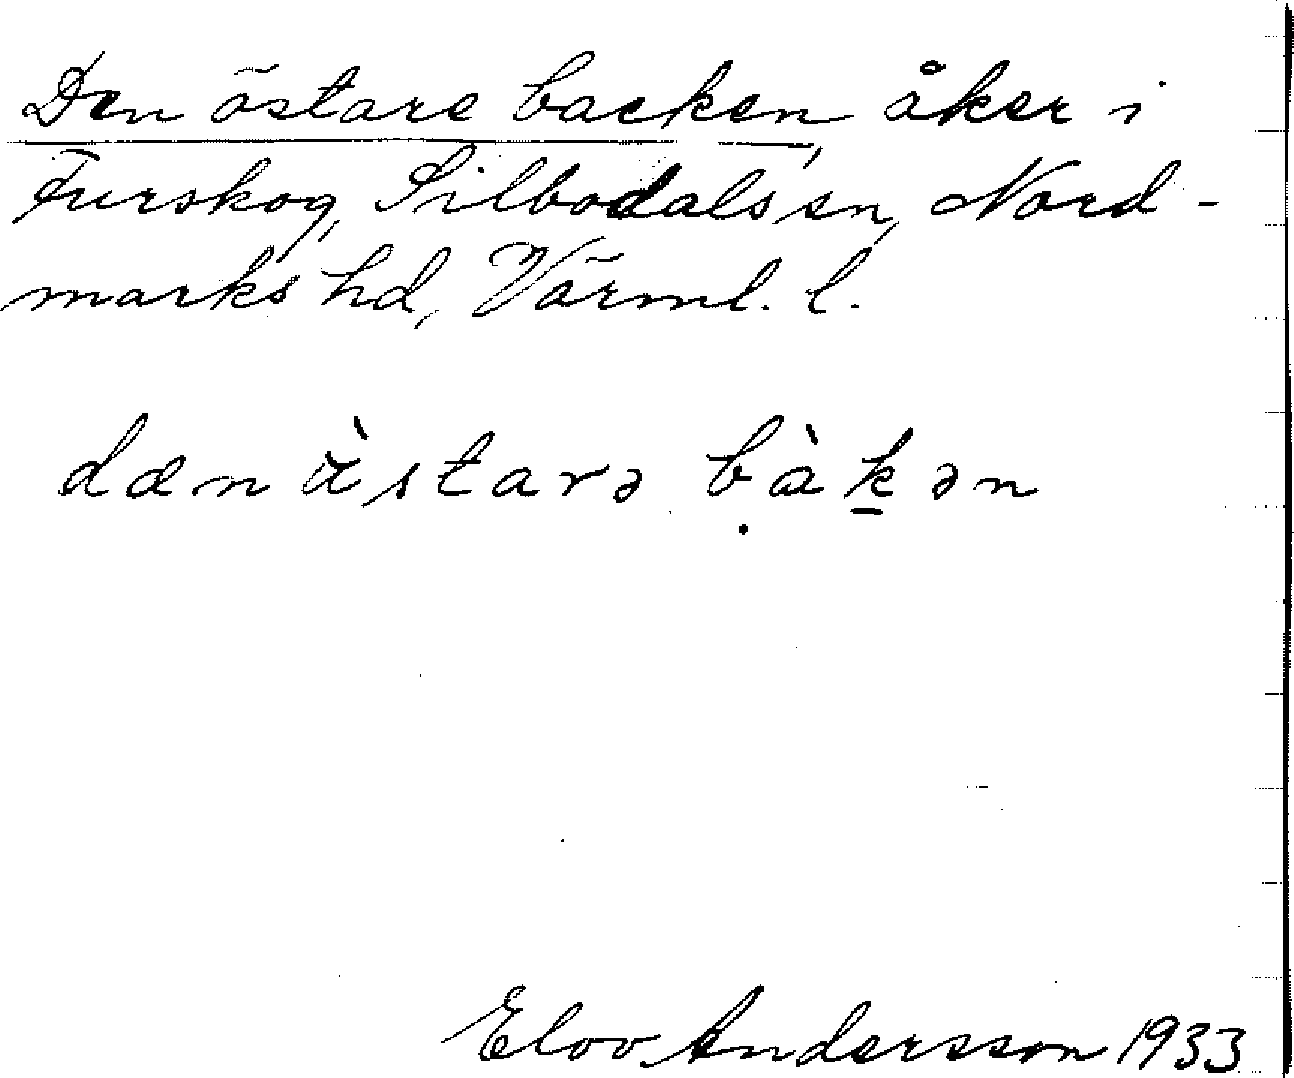 Den östare backen, åker i
Furskog, Silbodals sn, Nord-
marks hd, Värml. l.
dæn ö̀starə bàk̲ən
Elov Andersson 1933